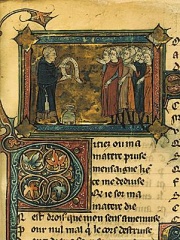 Pities ou ma
matere puise
mensaigne ke
ce me deduise
Q ie sor ma
matere die
N est drois que men sens amenuise
P our nul mal q le cors destruise